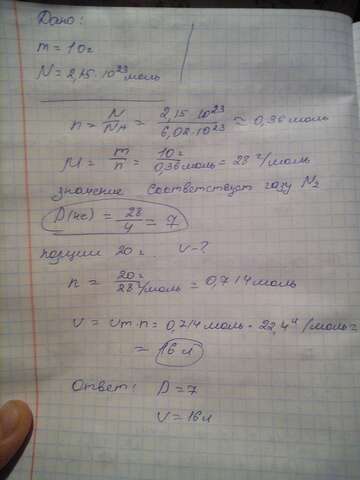 Дано:
m = 10г
N = 2,15 · 10²³ моль
n = N/Nₐ = 2,15 · 10²³/6,02 · 10²³ ≈ 0,36 моль
M = m/n = 10г/0,36моль = 28 г/моль
значение соответствует газу N₂
D(He) = 28/4 = 7
порции 20г. V-?
n = 20г/28г/моль = 0,714моль
V = Vm·n = 0,714 моль · 22,4 л/моль =
= 16 л
Ответ: D = 7
V = 16л